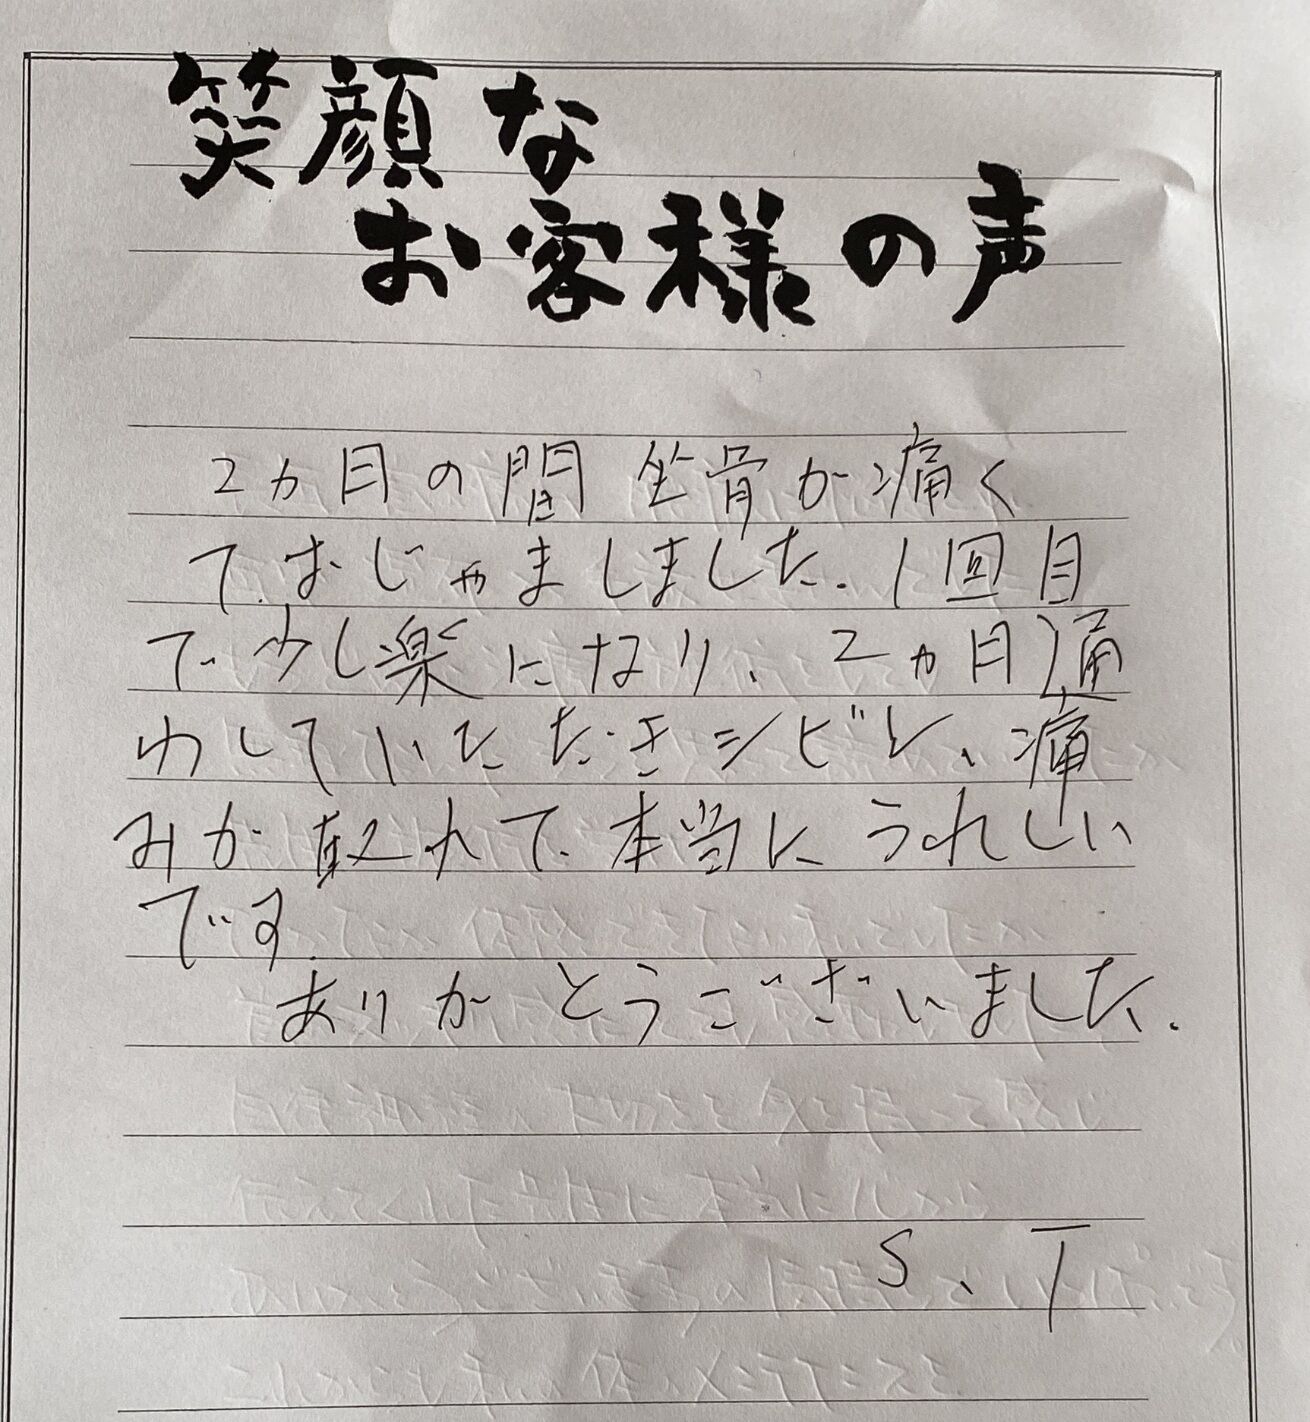 笑顔な
お客様の声
2ヵ月の間 坐骨が痛く
て、おじゃましました. 1回目
で少し楽になり、2ヵ月通
わしていただきシビレ、痛
みが取れて、本当にうれしい
です.
ありがとうございました.
S、T